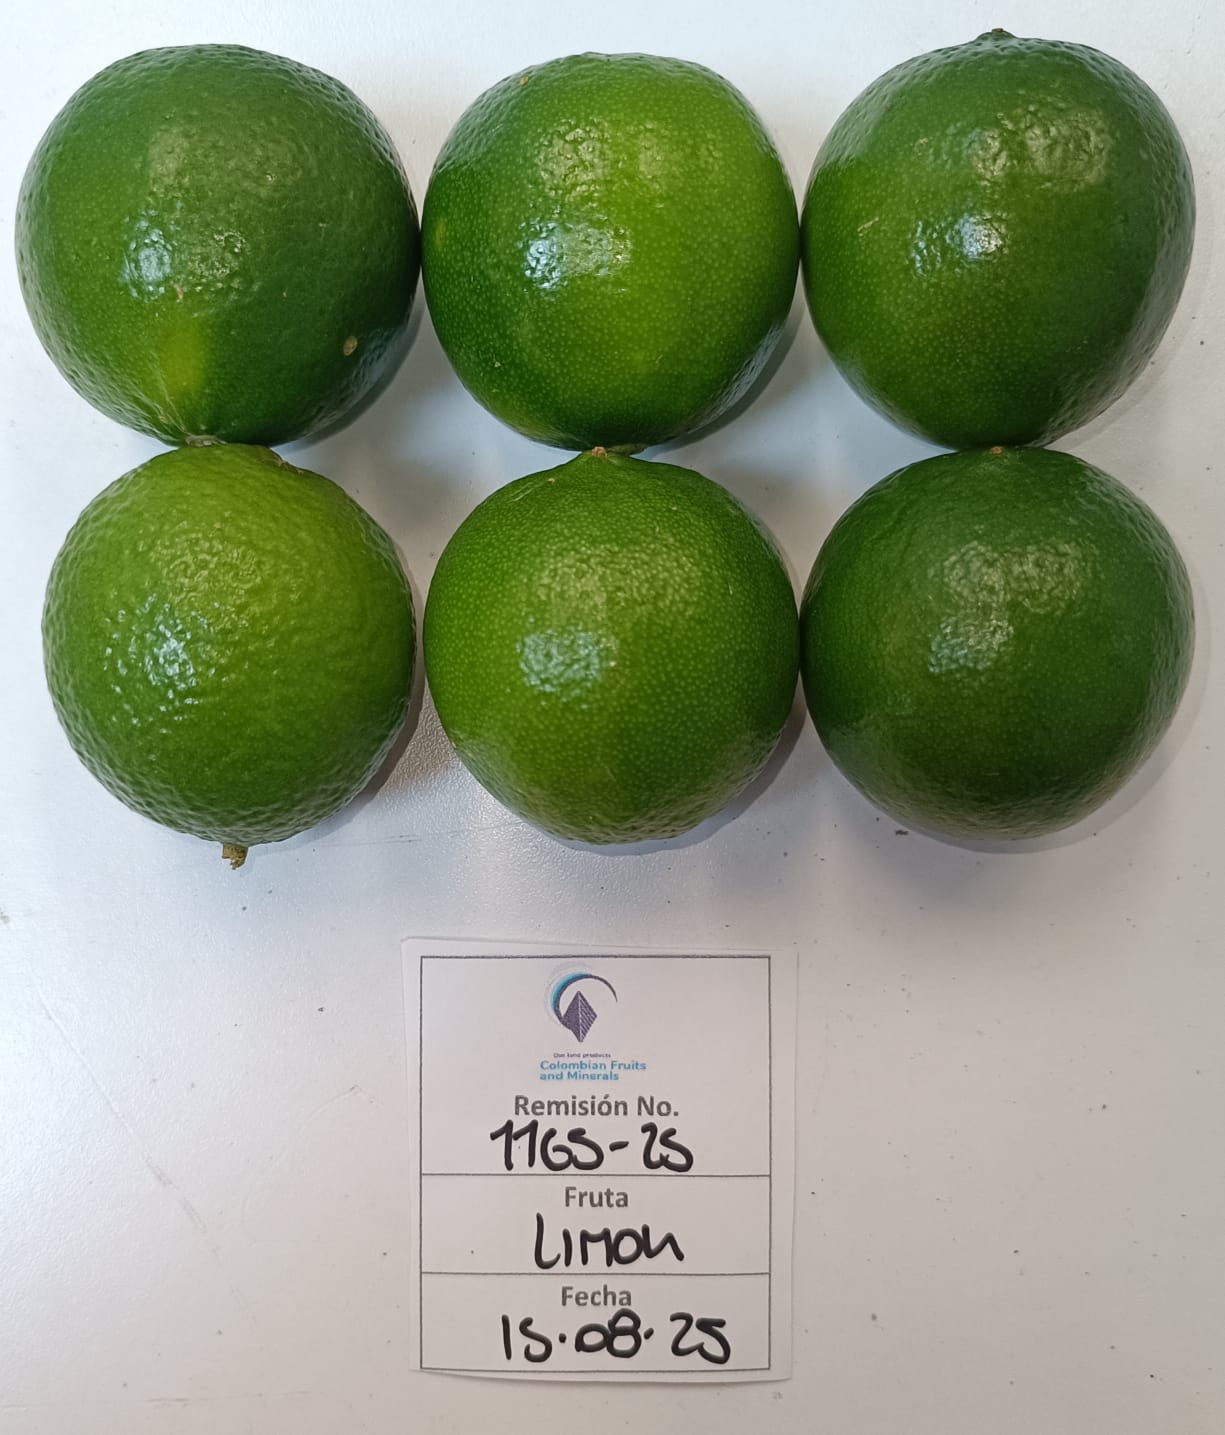 Our land products
Colombian Fruits
and Minerals
Remisión No.
1165-25
Fruta
LIMON
Fecha
15.08.25